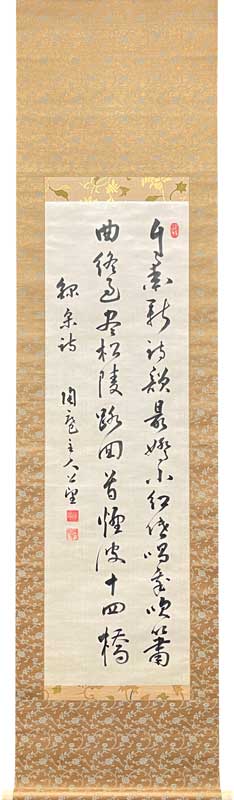 自喜新詩韻最嬌小紅低唱我吹簫
曲終過盡松陵路回首煙波十四橋
錄宋詩
陶庵主人公望